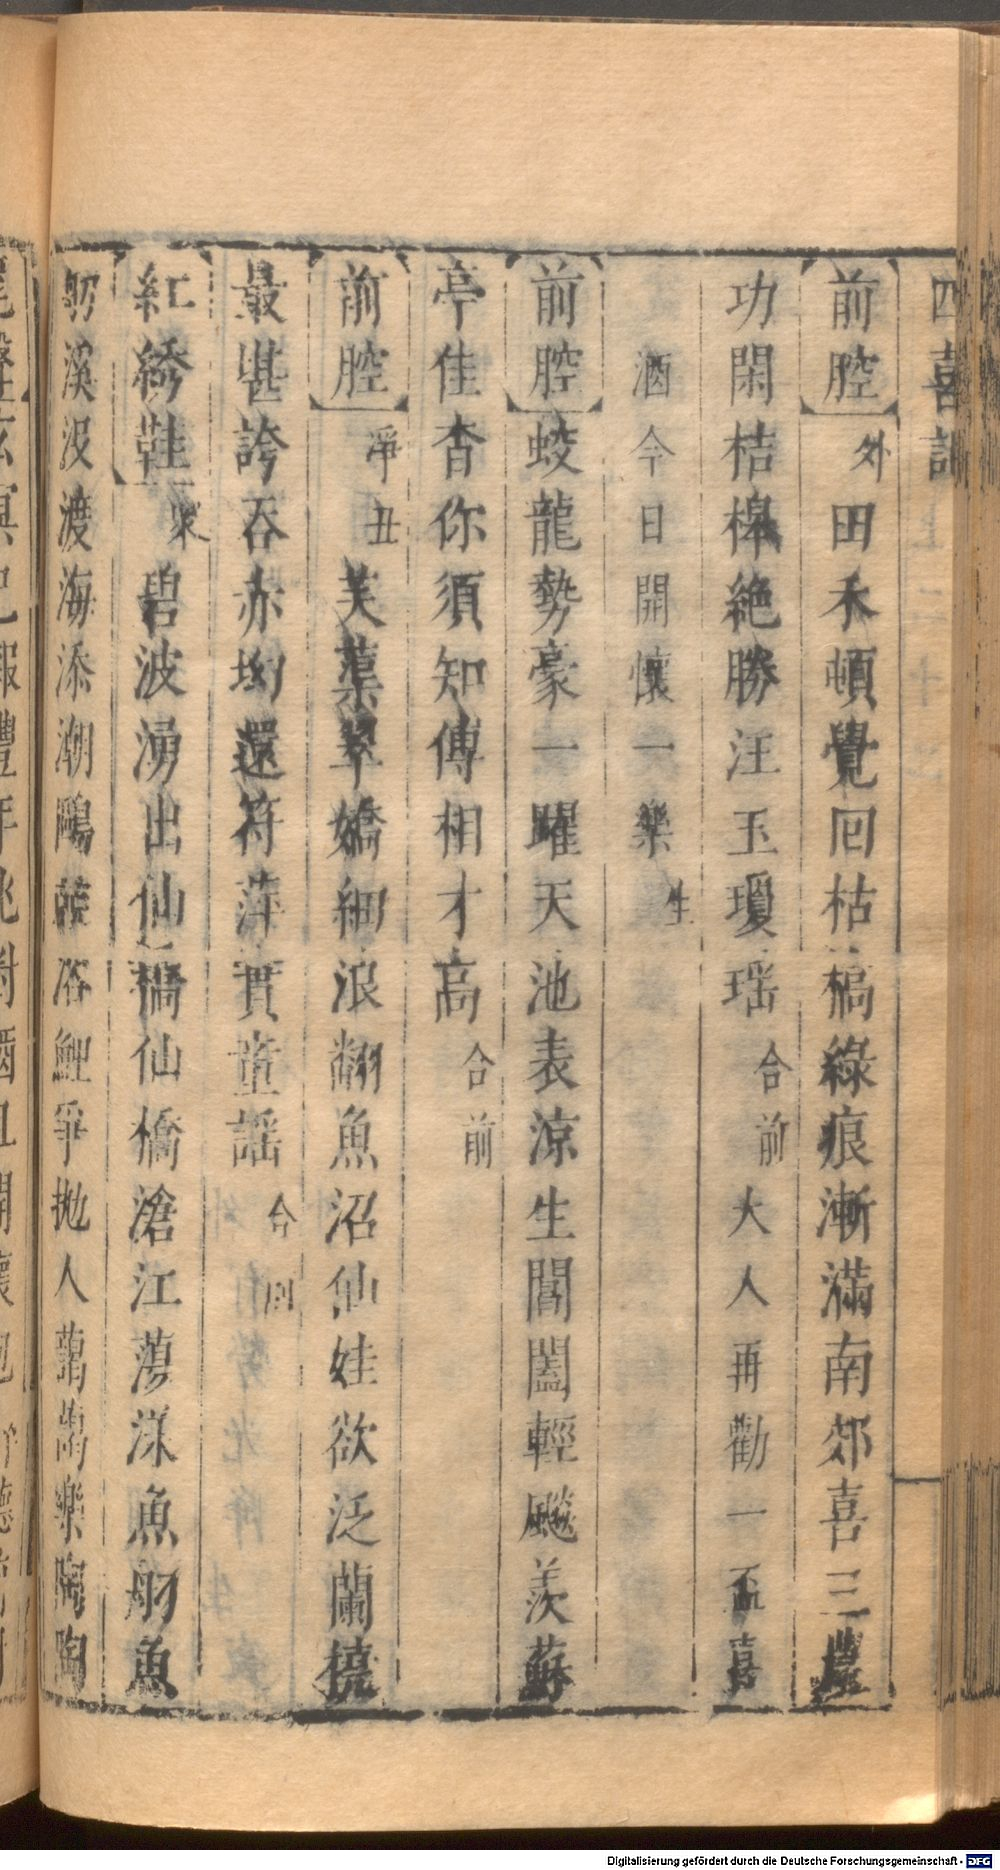 四喜記
前腔 外 田禾頓覺回枯槁綠痕漸滿南郊喜三農
功閑桔槹絶勝汪玉瓊瑶 合前 大人再勸一盃喜
酒今日開懷一樂 生
前腔 蛟龍勢豪一躍天池表涼生閶闔輕颷羨蘇
亭佳杏你須知傅相才高 合前
前腔 淨丑 芙蕖翠嬌細浪翻魚沼仙娃欲泛蘭橈
最堪誇吞赤均還符萍實童謡 合同
紅綉鞋 衆 碧波湧出仙橋仙橋滄江蕩漾魚舠魚
舠溪没渡海添潮鷗競浴鯉爭抛人藹藹樂陶陶
Digitalisierung gefördert durch die Deutsche Forschungsgemeinschaft - DFG